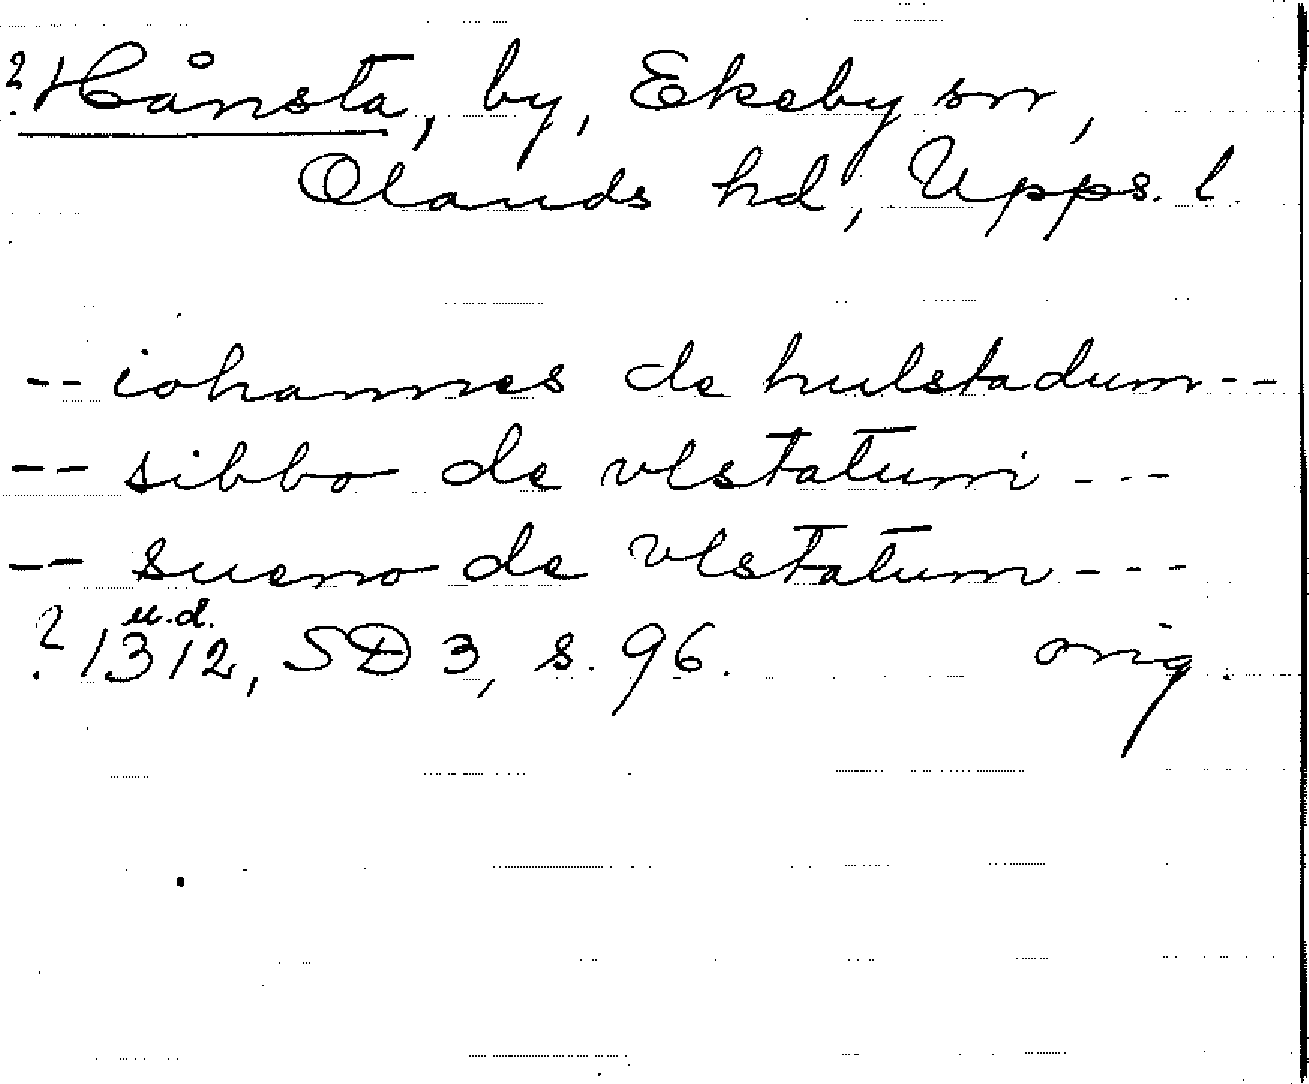 ? Hånsta, by, Ekeby sn,
Olands hd, Upps. l
-- iohannes de hulstadum --
-- sibbo de vlstatum ---
-- sueno de vlstatum ---
u.d.
? 1312, SD 3, s. 96. orig.